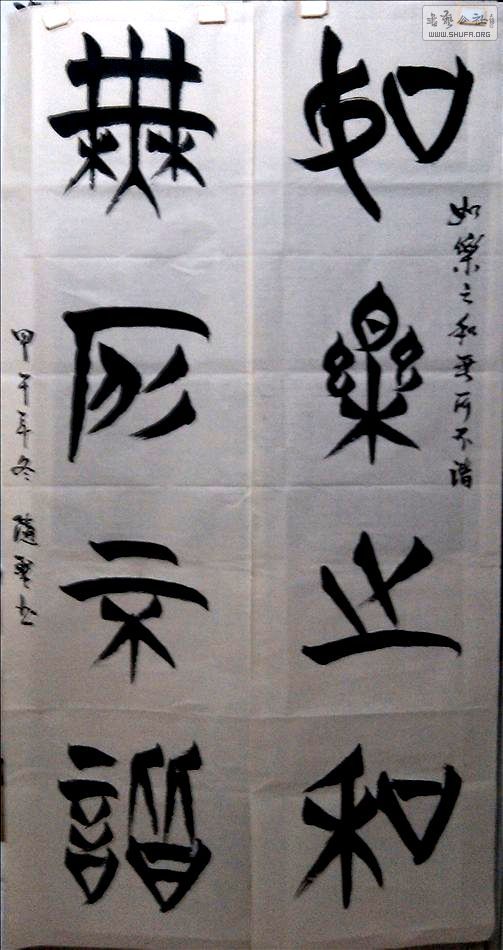 书艺公社
WWW.SHUFA.ORG
如樂之和無所不諧
如樂之和
無所不諧
甲午年冬 隨書